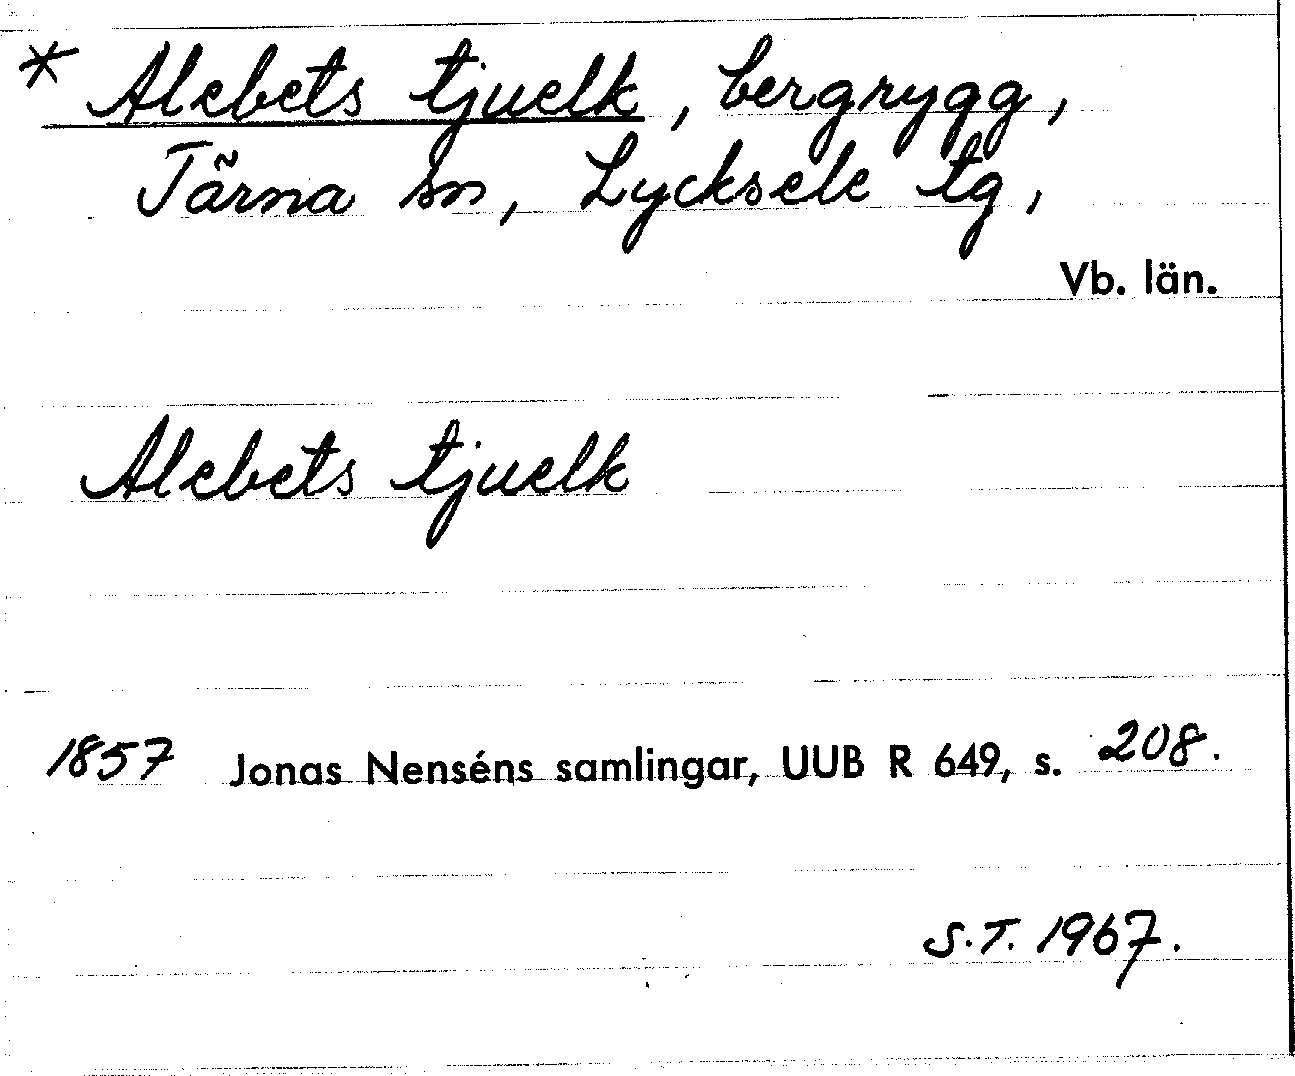 * Alebets tjuelk, bergrygg,
Tärna sn, Lycksele tg,
Vb. län.
Alebets tjuelk
1857 Jonas Nenséns samlingar, UUB R 649, s. 208.
S.T. 1967.